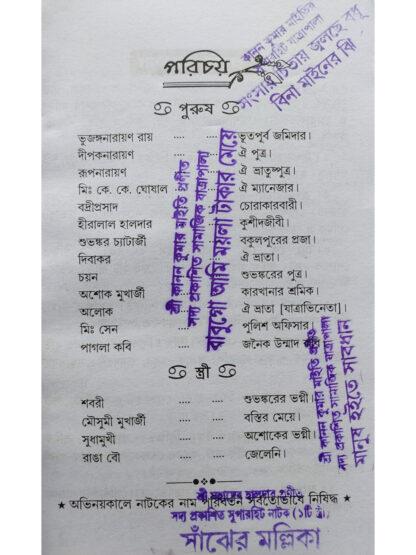 পরিচয়
কানন কুমার মাইতির
সুপারহিট যাত্রাপালা
সংসার চিতায় জ্বলছে বধূ
বিনা মাইনের ঝি
পুরুষ
ভুজঙ্গনারায়ণ রায় .... .... ভূতপূর্ব জমিদার।
দীপকনারায়ণ .... .... ঐ পুত্র।
রূপনারায়ণ .... .... ঐ ভ্রাতুষ্পুত্র।
মিঃ কে. কে. ঘোষাল .... .... ঐ ম্যানেজার।
বদ্রীপ্রসাদ .... .... চোরাকারবারী।
হীরালাল হালদার .... .... কুশীদজীবী।
শুভঙ্কর চ্যাটার্জী .... .... বকুলপুরের প্রজা।
দিবাকর .... .... ঐ ভ্রাতা।
চয়ন .... .... শুভঙ্করের পুত্র।
অশোক মুখার্জী .... .... কারখানার শ্রমিক।
অলোক .... .... ঐ ভ্রাতা [যাত্রাভিনেতা]।
মিঃ সেন .... .... পুলিশ অফিসার।
পাগলা কবি .... .... জনৈক উন্মাদ
শ্রী কানন কুমার মাইতি প্রণীত
সদ্য প্রকাশিত সামাজিক যাত্রাপালা
বাবুগো আমি ময়লা টাকার মেয়ে
স্ত্রী
শবরী .... .... শুভঙ্করের ভগ্নী।
মৌসুমী মুখার্জী .... .... বস্তির মেয়ে।
সুধামুখী .... .... অশোকের ভগ্নী।
রাঙা বৌ .... .... জেলেনি।
শ্রী কানন কুমার মাইতি প্রণীত
সদ্য প্রকাশিত সামাজিক যাত্রাপালা
মানুষ হইতে সাবধান
★ অভিনয়কালে নাটকের নাম পরিবর্তন সর্বতোভাবে নিষিদ্ধ ★
শ্রী হালদার প্রণীত
সদ্য প্রকাশিত সুপারহিট নাটক (১টি স্ত্রী)
সাঁঝের মল্লিকা